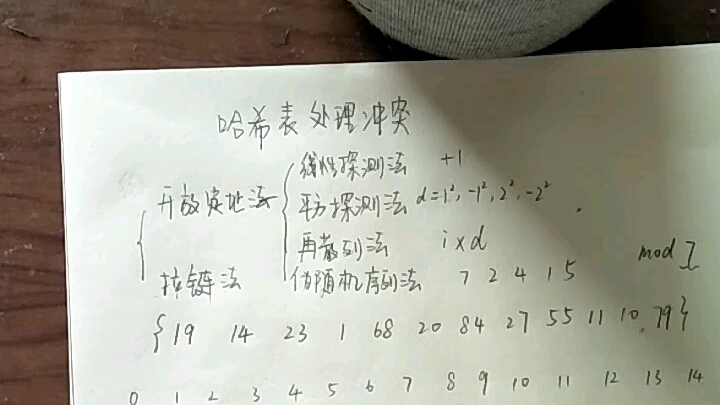 哈希表处理冲突
线性探测法 +1
开放定址法 平方探测法 d=1²,-1²,2²,-2²
再散列法 i×d
拉链法 伪随机序列法 7 2 4 1 5 mod
{19 14 23 1 68 20 84 27 55 11 10 79}
0 1 2 3 4 5 6 7 8 9 10 11 12 13 14